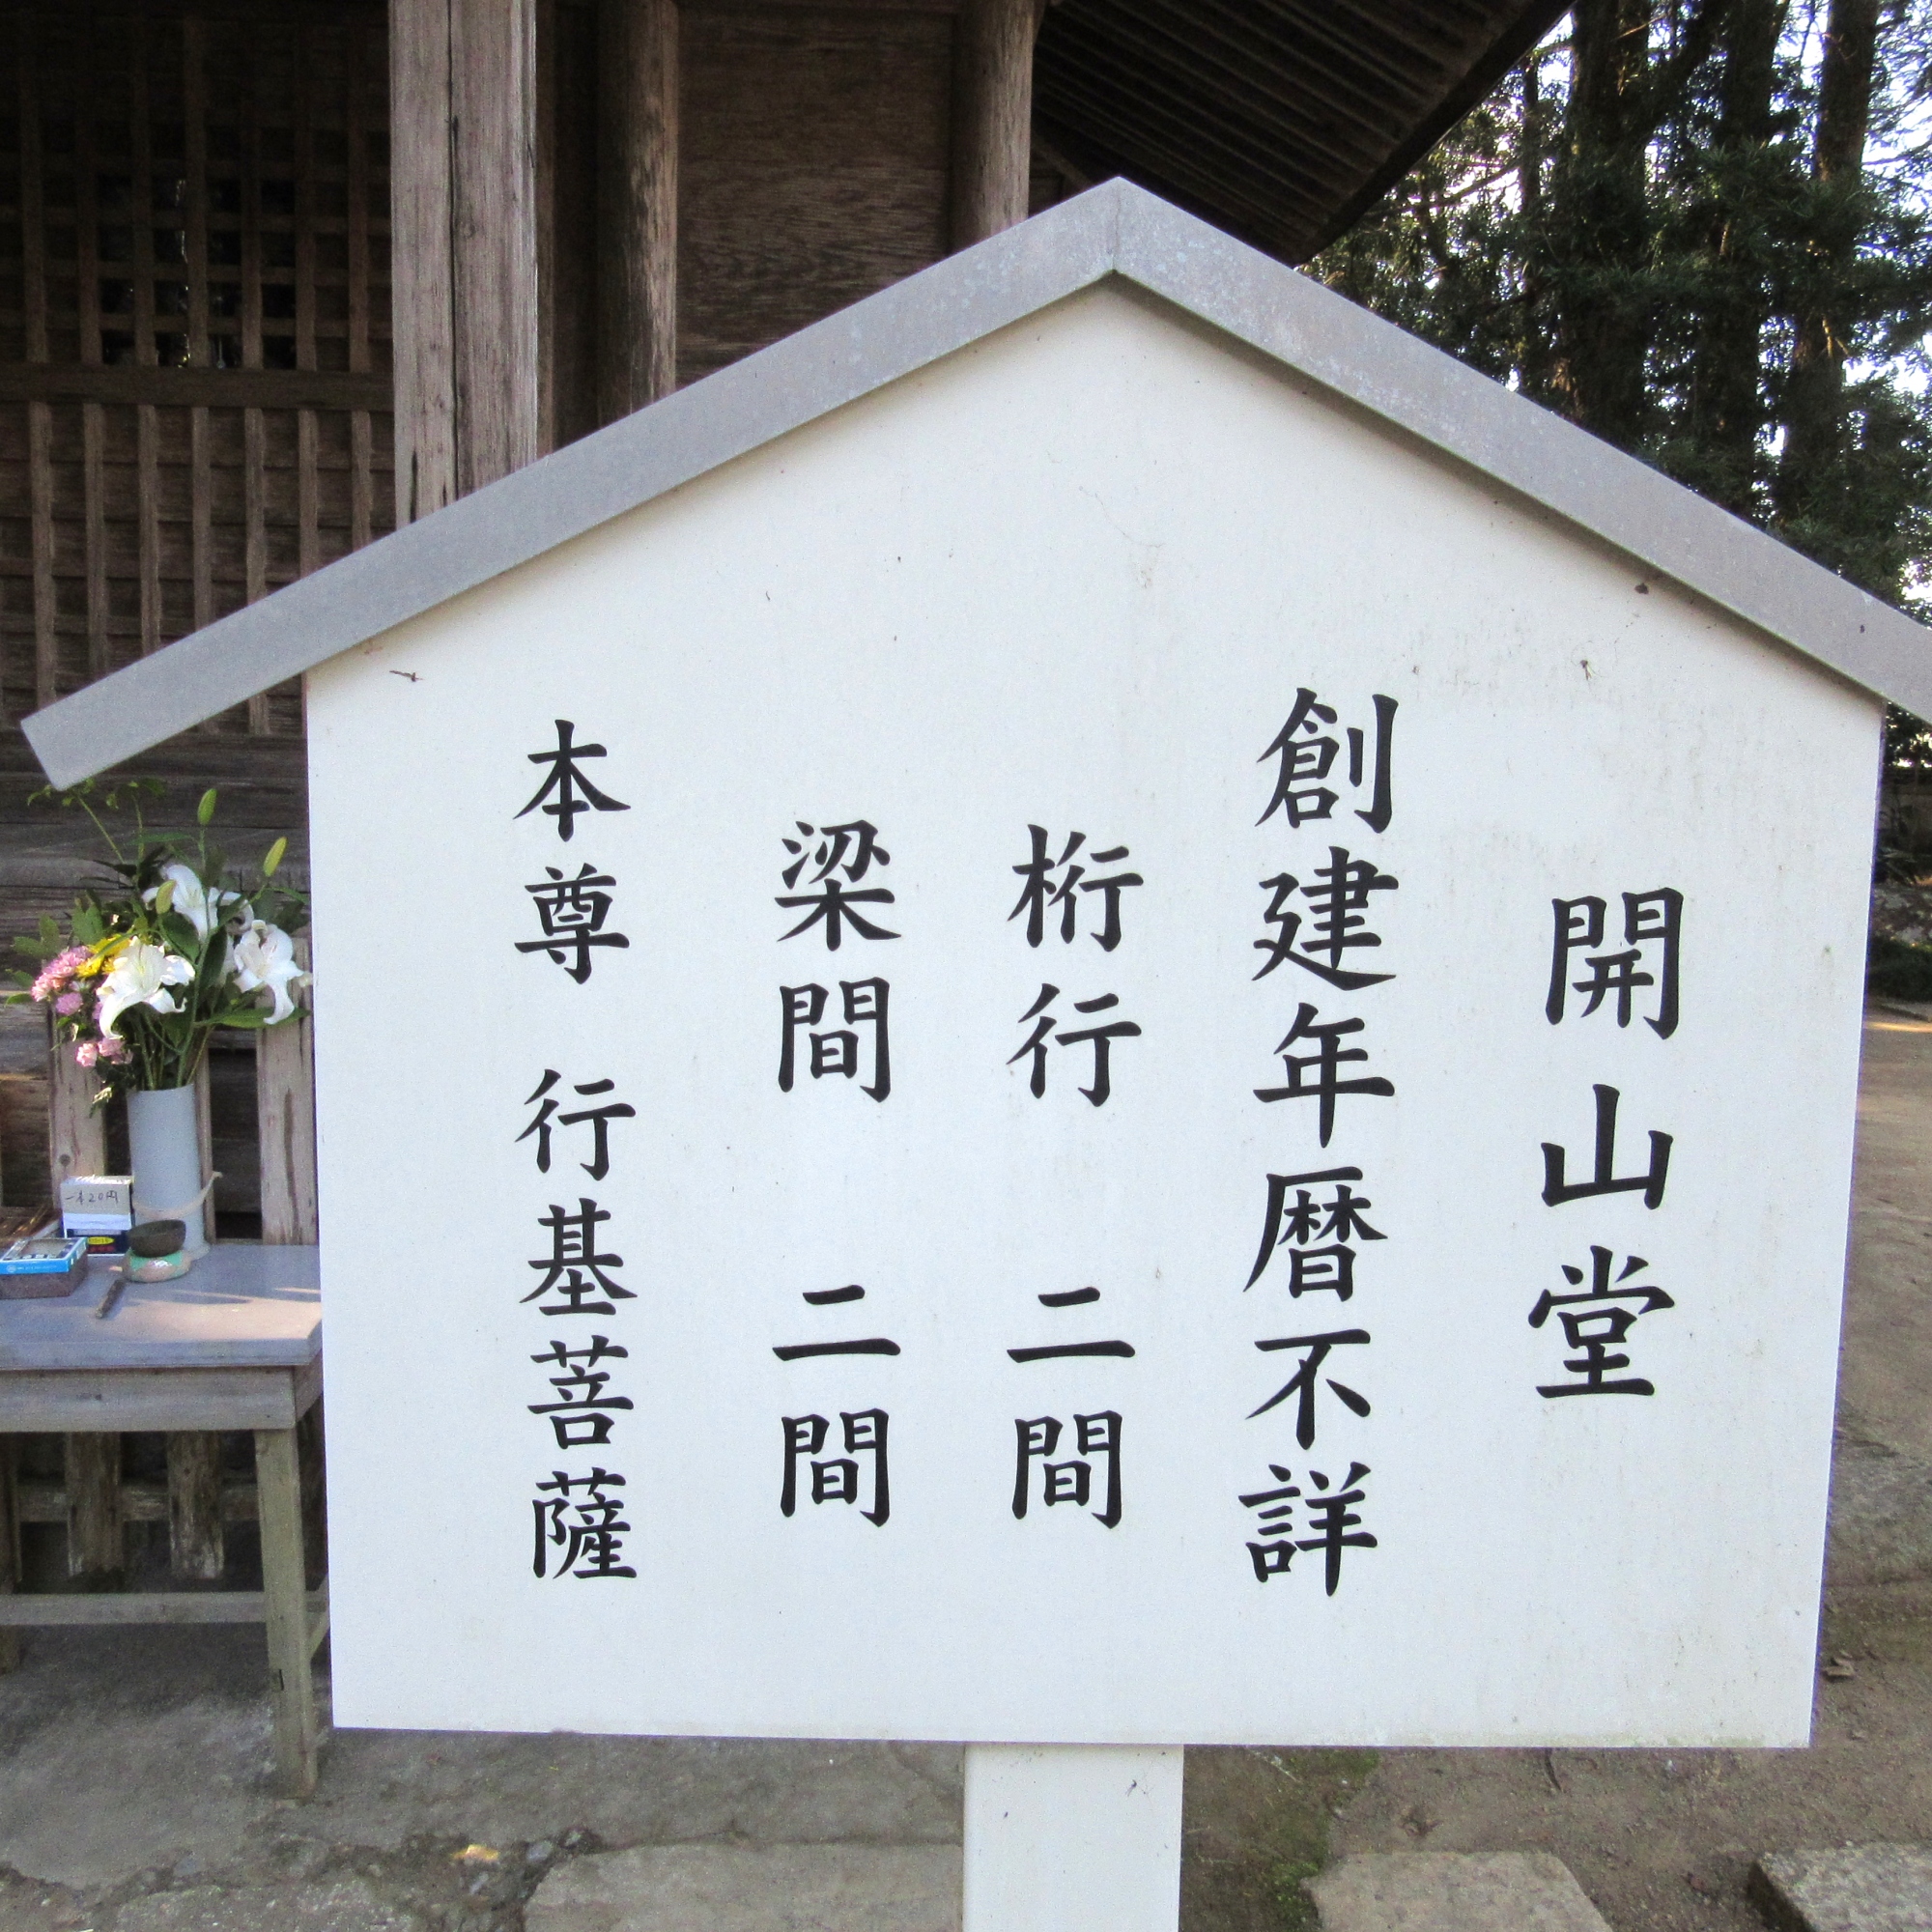 開山堂
創建年暦不詳
桁行 二間
梁間 二間
本尊 行基菩薩